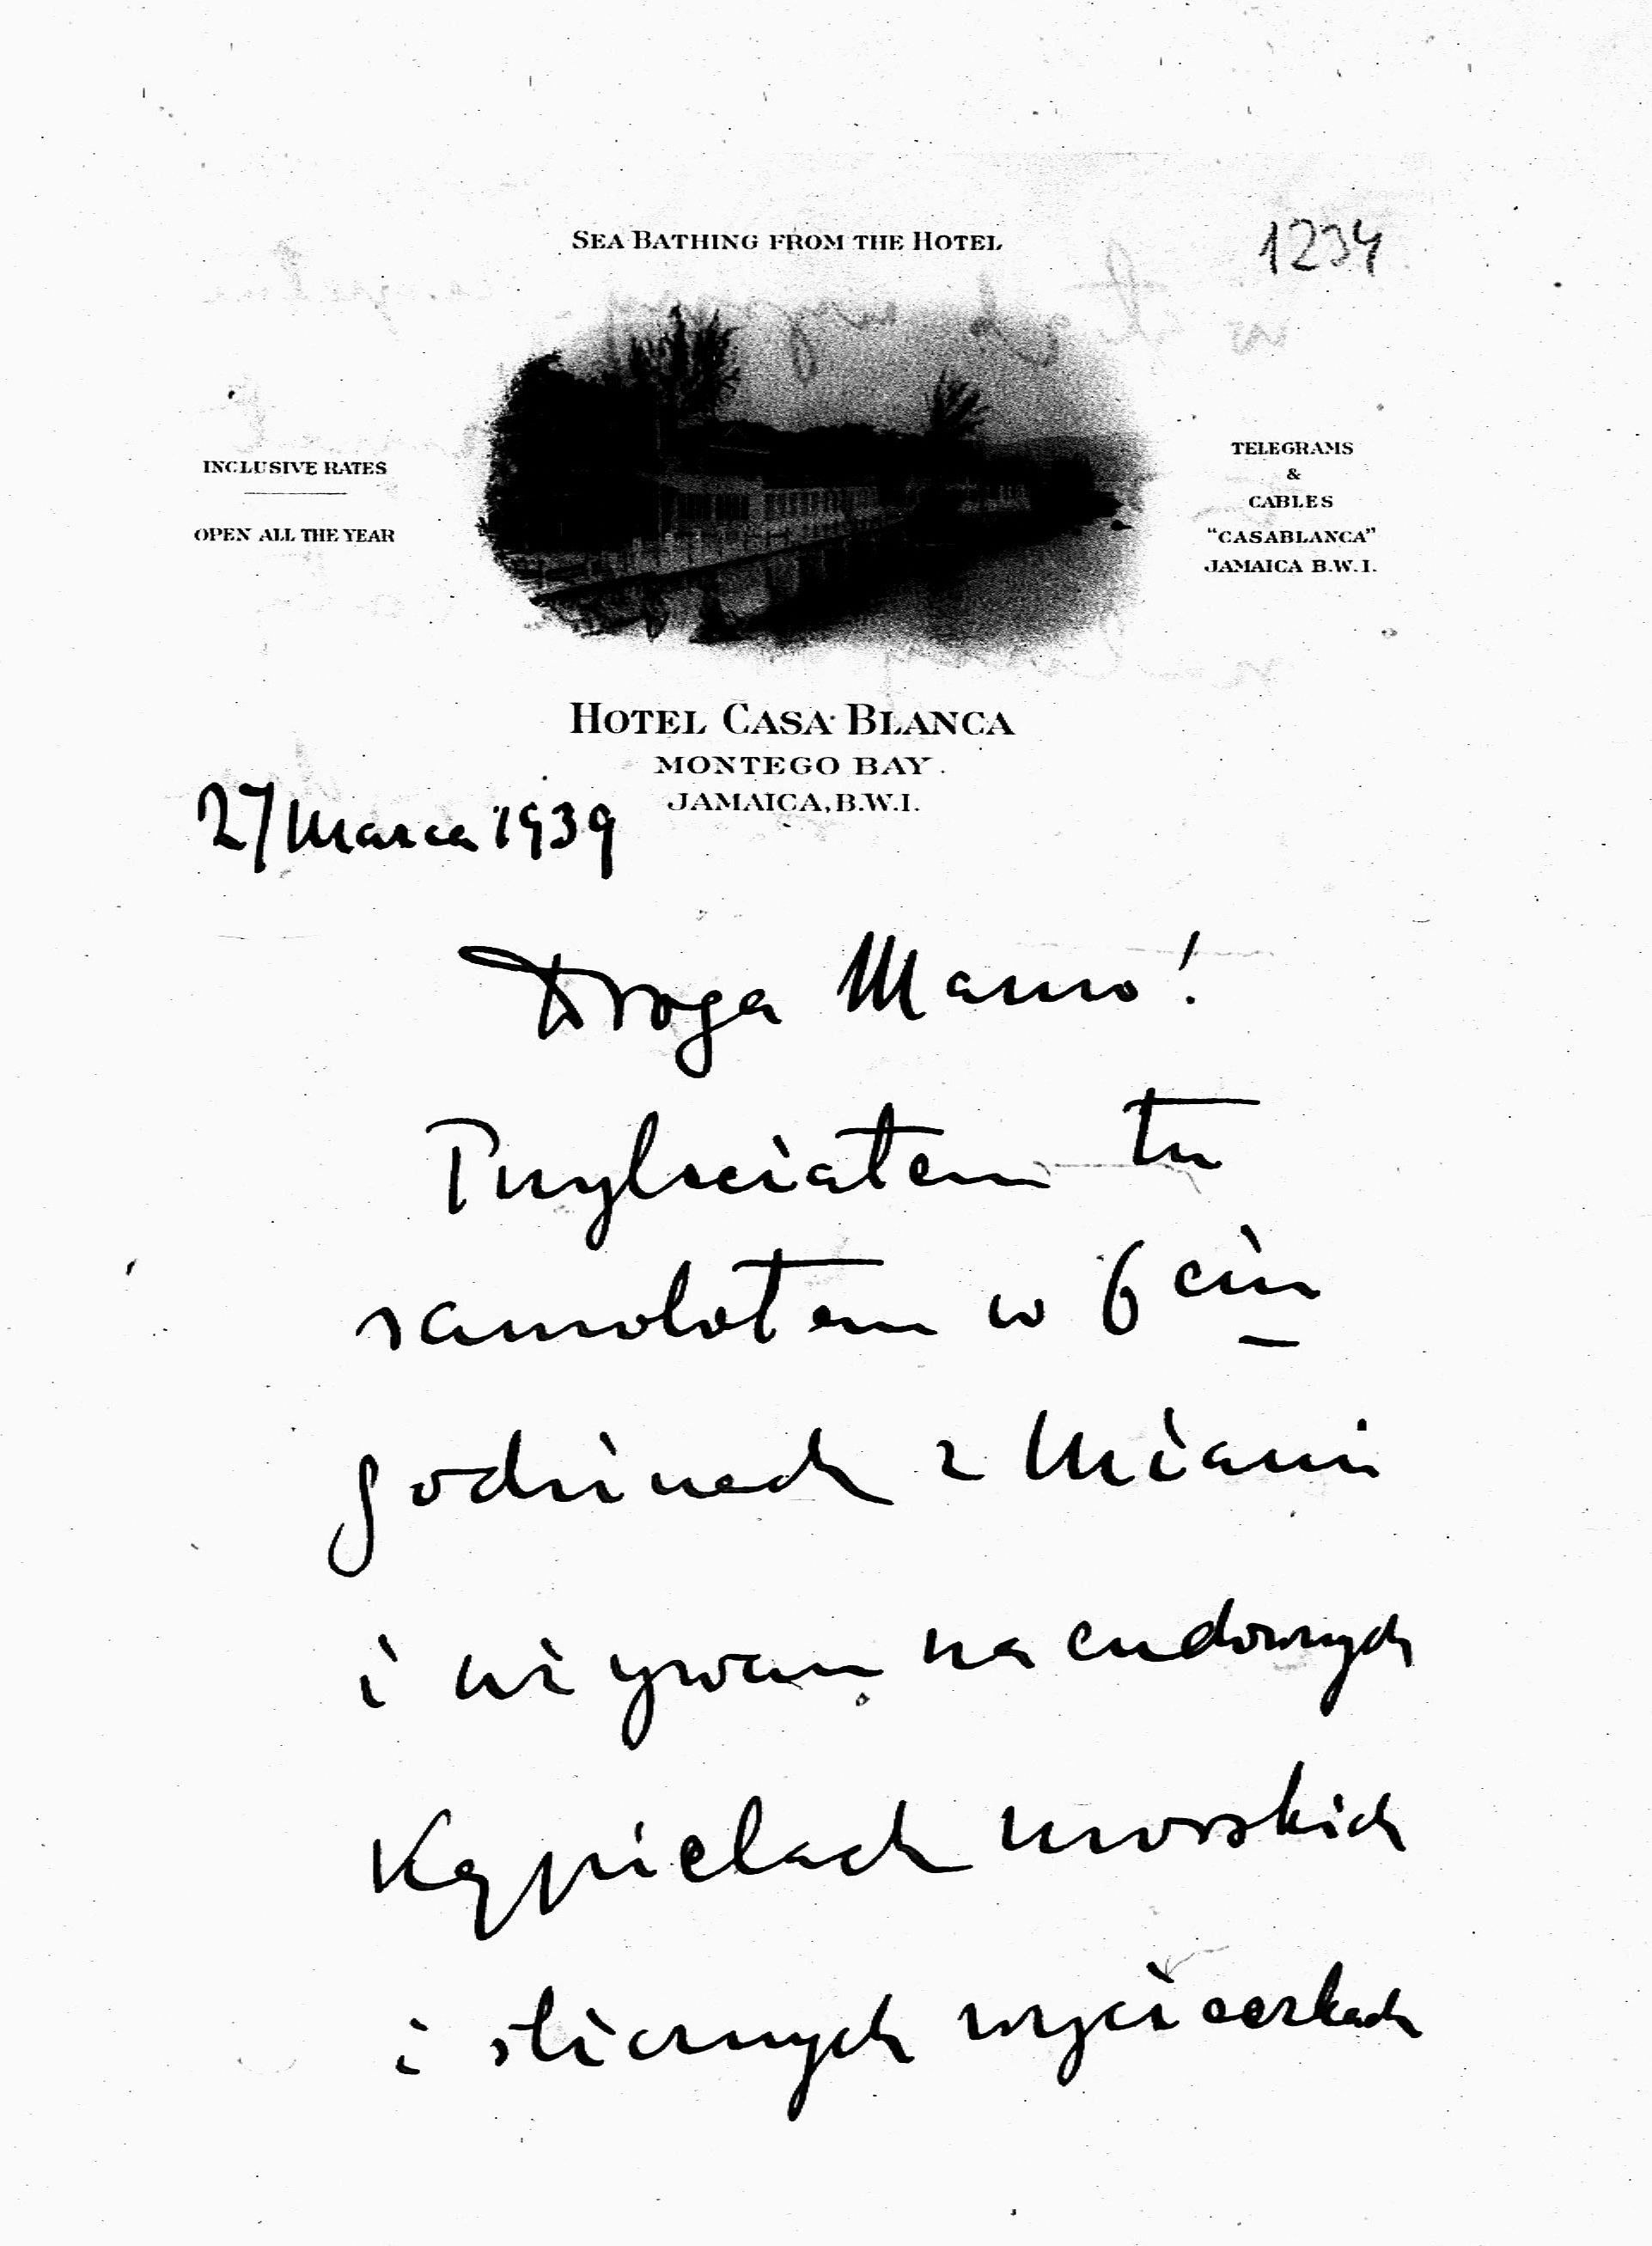 SEA BATHING FROM THE HOTEL
1234
INCLUSIVE RATES
OPEN ALL THE YEAR
TELEGRAMS
&
CABLES
"CASABLANCA"
JAMAICA B.W.I.
HOTEL CASA BLANCA
MONTEGO BAY.
JAMAICA, B.W.I.
27 Marca 1939
Droga Mamo!
Przyleciałem tu
samolotem w 6ciu
godzinach z Miami
i używam na cudownych
Kąpielach morskich
i ślicznych wycieczkach